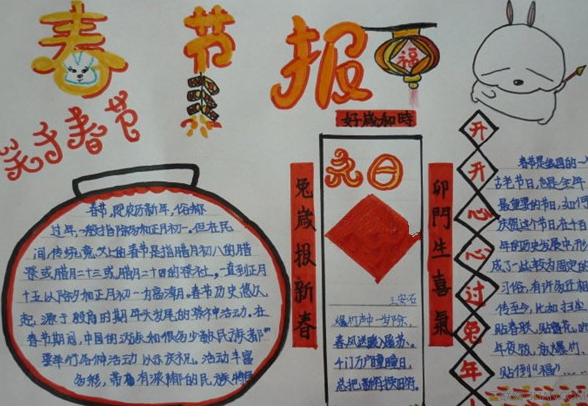 春节报
福
关于春节
好歳和時
兔歳报新春
元日
王安石
爆竹声中一岁除,
春风送暖入屠苏。
千门万户曈曈日,
总把新桃换旧符。
卯門生喜氣
开开心心过兔年
春节,即农历新年,俗称
过年,一般指除夕和正月初一。但在民
间,传统意义上的春节是指腊月初八的腊
祭或腊月二十三或腊月二十四的祭灶,一直到正月
十五,以除夕和正月初一为高潮。春节历史悠久,
起源于殷商时期年头岁尾的祭神活动。在
春节期间,中国的汉族和很多少数民族都
要举行各种活动以示庆祝。活动丰富
多彩,带有浓郁的民族特
春节是我国的一
古老节日,也是全年
最重要的节日,如何
庆贺这个节日,在千百
年的历史发展中,形
成了一些较为固定的
习俗,有许多还相
传至今,比如扫尘
贴春联,贴窗花,
年夜饭,放爆竹,
贴倒“福”……